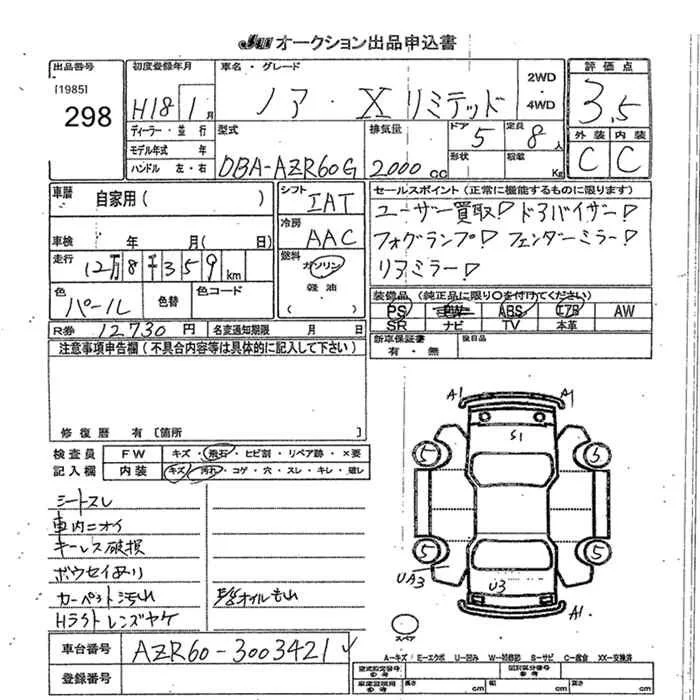 JU オークション出品申込書
出品番号 [1985] 298
初度登録年月 H18 1月
車名・グレード ノア・X リミテッド
2WD・4WD
評価点 3.5
外装 C 内装 C
ディーラー・並行
モデル年式 年
ハンドル 左・右
型式 DBA-AZR60G
排気量 2000 cc
ドア 5 定員 8人
形状 積載 Kg
車暦 自家用( )
車検 年 月( 日)
走行 12万8千359km
色 パール 色替 色コード
シフト IAT
冷房 AAC
燃料 ガソリン 軽油 ( )
セールスポイント(正常に機能するものに限ります)
ユーザー買取! ドアバイザー!
フォグランプ! フェンダーミラー!
リアミラー!
装備品(純正品に限り○を付けてください)
PS PW ABS エアB AW
SR ナビ TV 本革
新車保証書 有・無 後日品
R券 12730円 名変通知期限 月 日
注意事項申告欄(不具合内容等は具体的に記入して下さい)
修復歴 有〔箇所 〕
検査員 FW キズ・飛石・ヒビ割・リペア跡・×要
記入欄 内装 キズ・汚れ・コゲ・穴・スレ・キレ・破レ
シートスレ
車内ニオイ
キーレス破損
ボウセイあり
カーペット汚れ
Hライトレンズヤケ
A1 A1
S1
5 5
5 5
UA3 U3
A1
スペア
車台番号 AZR60-3003421
登録番号
A—キズ E—エクボ U—凹み W—補修跡 S—サビ C—腐食 XX—交換済
型式指定番号 類別区分番号
長さ cm 幅 cm 高さ cm